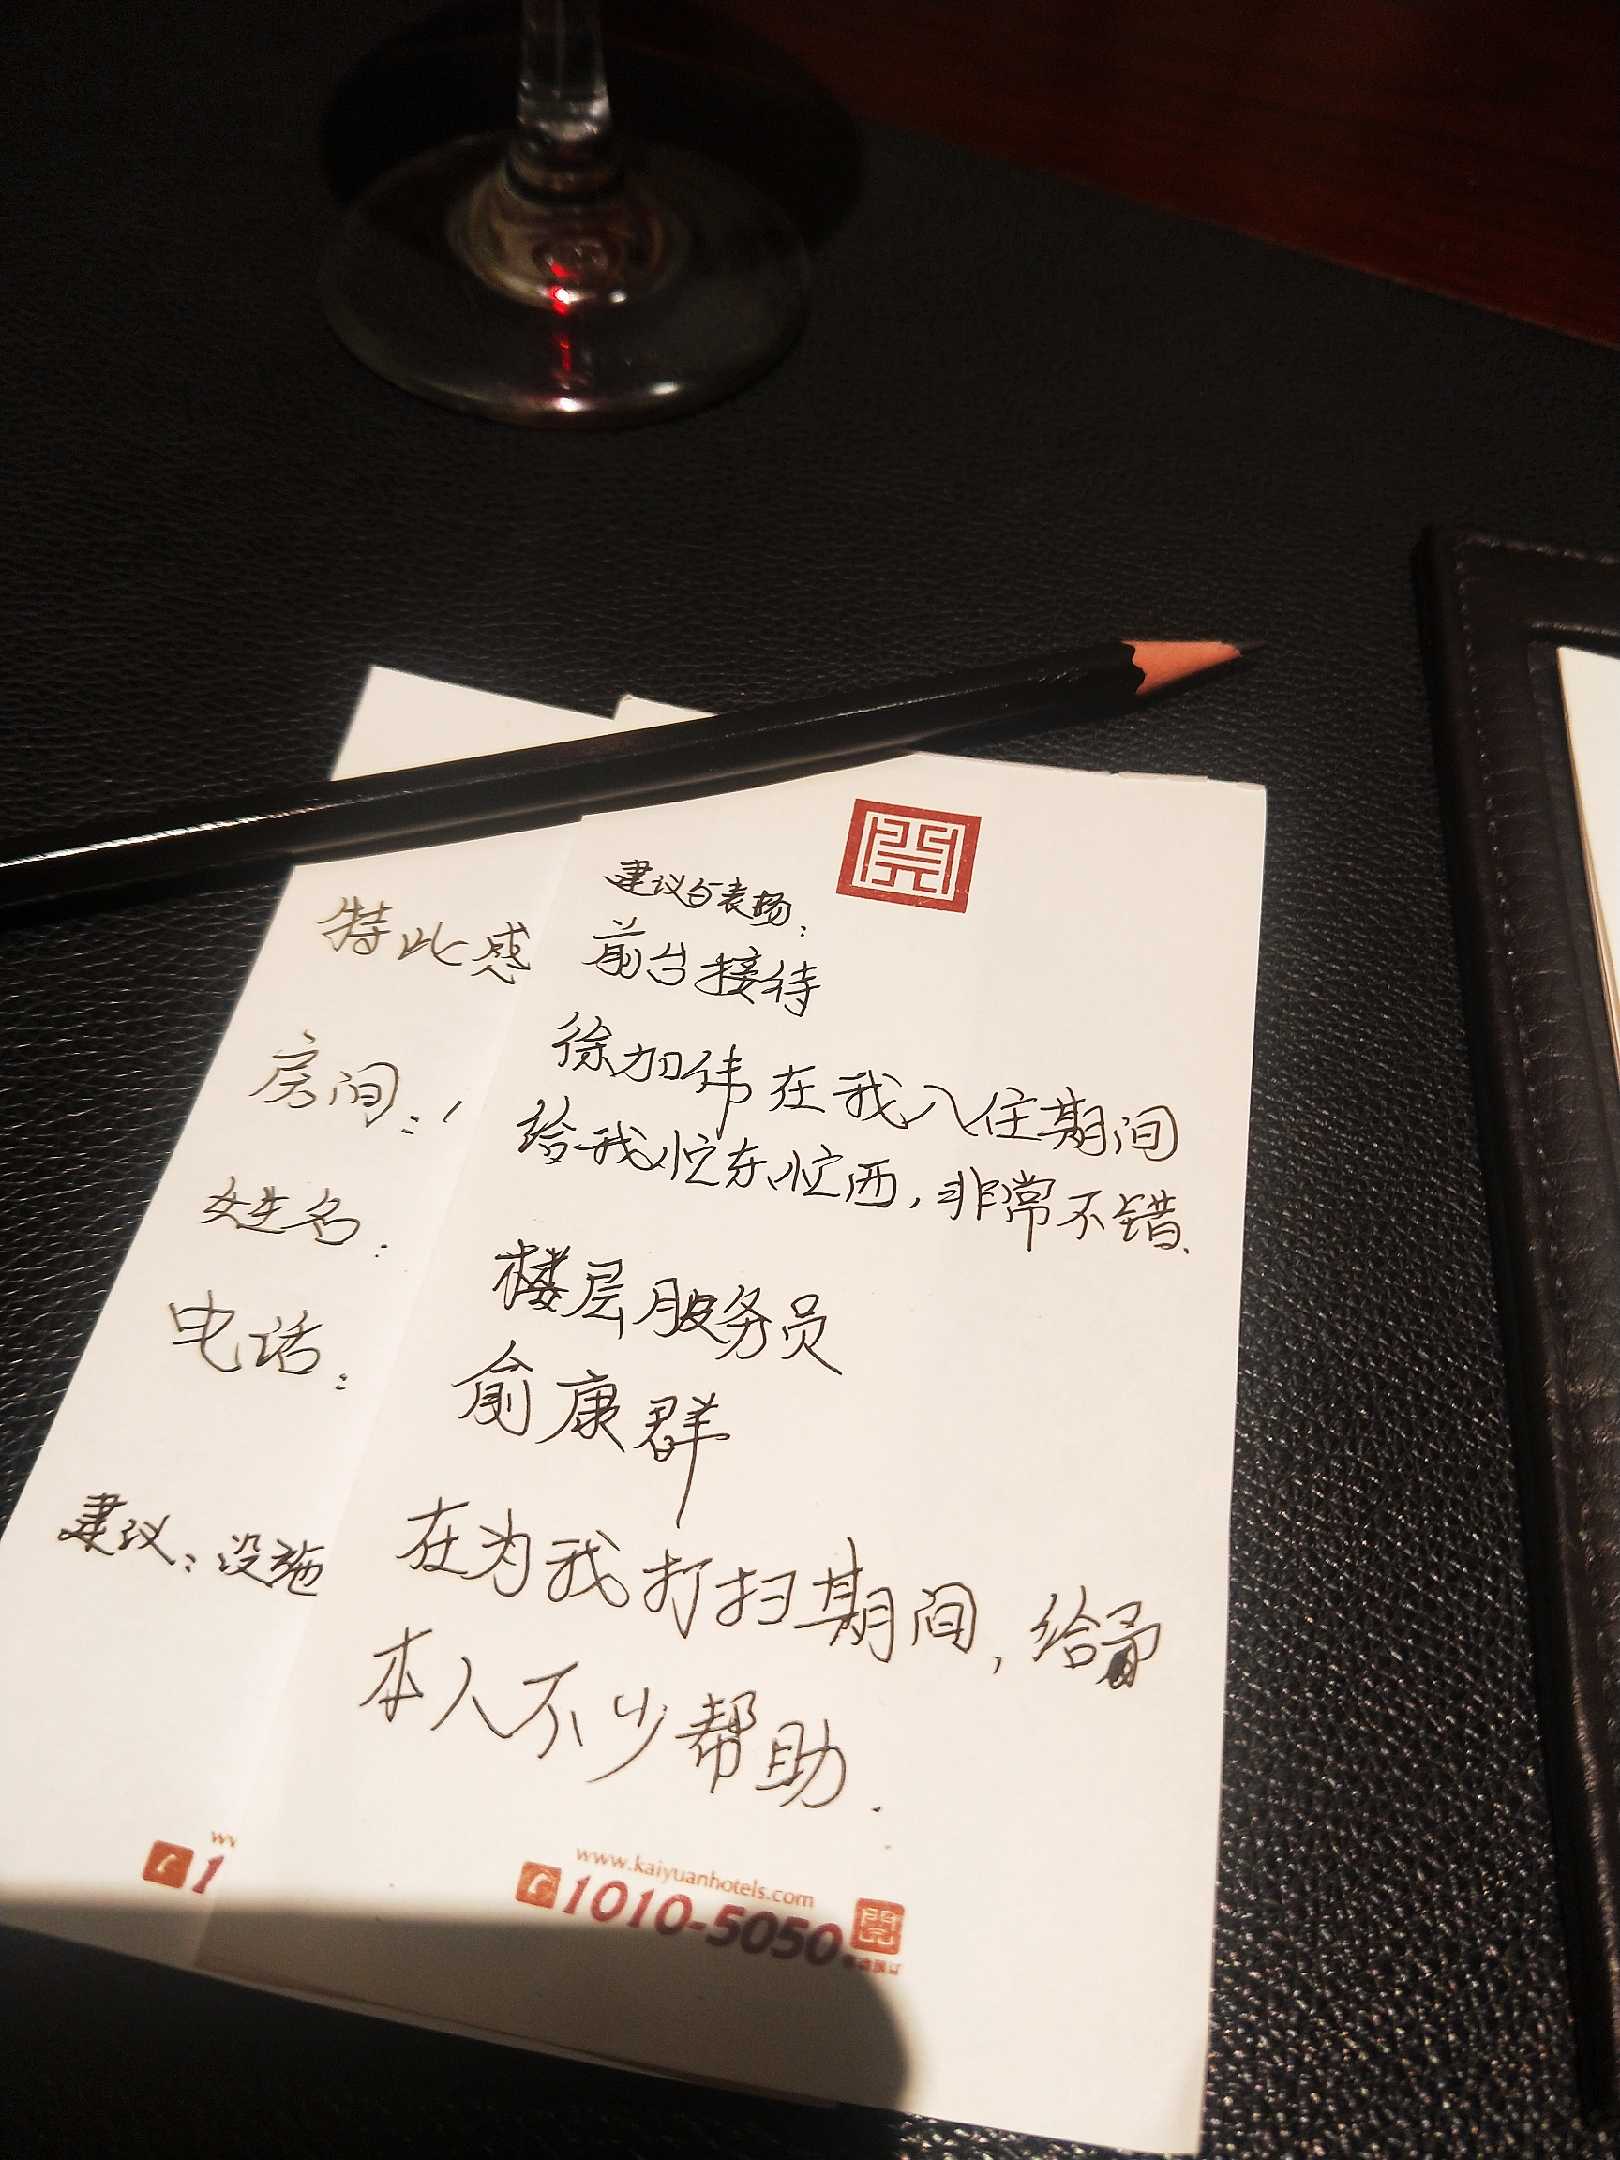 特此感
房间:
姓名:
电话:
建议:设施
建议与表扬:
前台接待
徐加伟在我入住期间
给我忙东忙西,非常不错.
楼层服务员
俞康群
在为我打扫期间,给予
本人不少帮助.
www.kaiyuanhotels.com
1010-5050
開
1